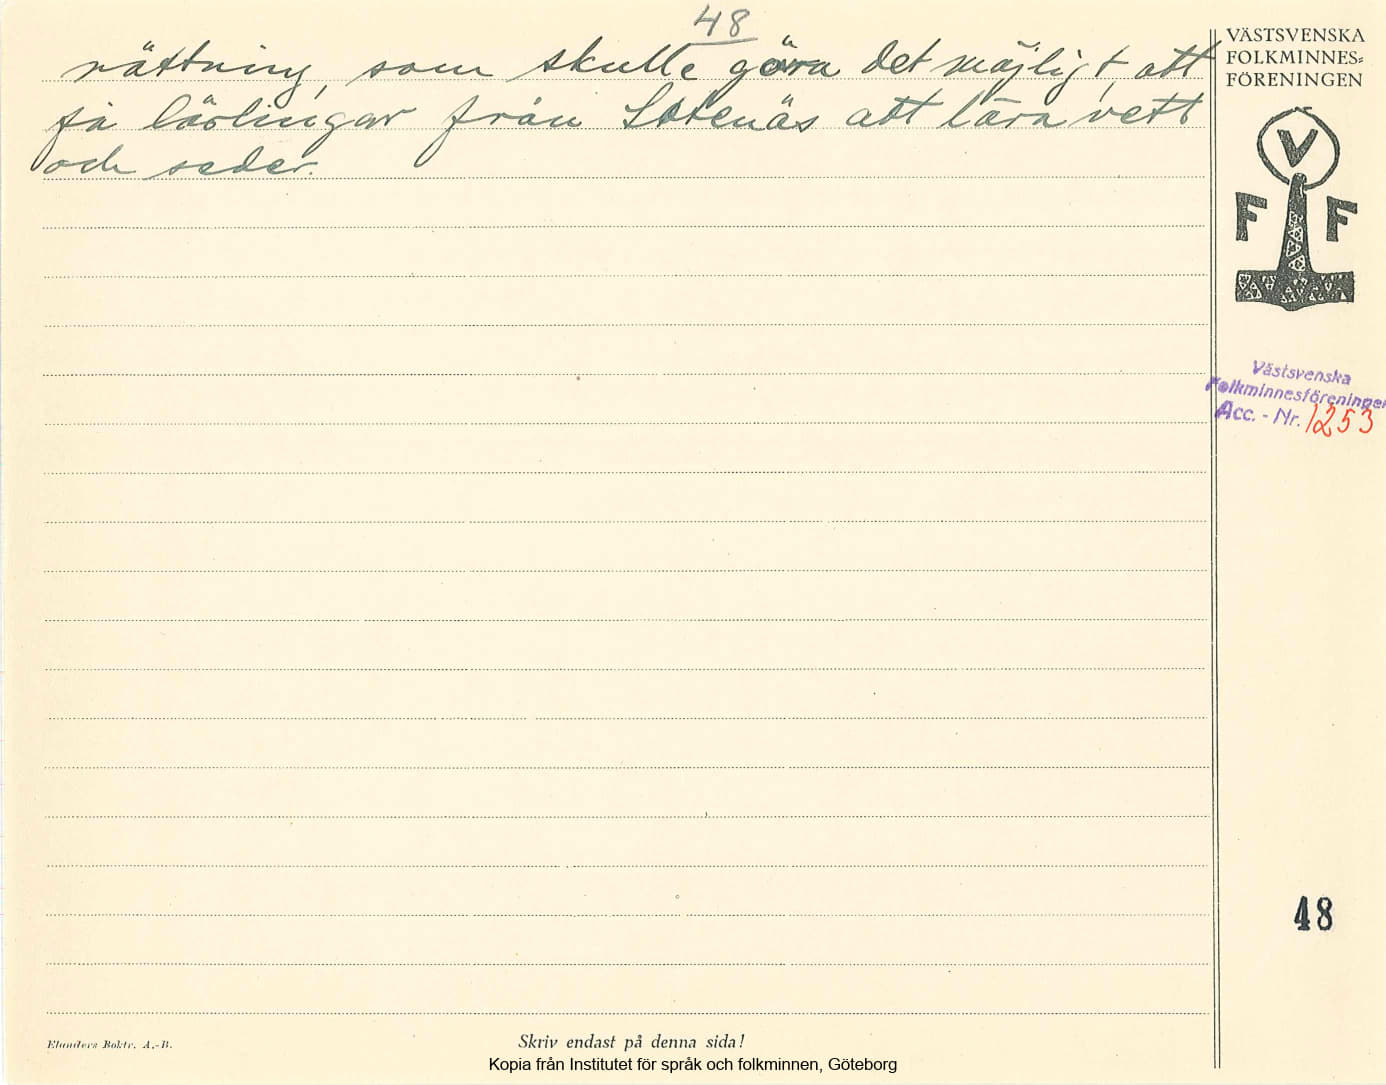 48
rättning, som skulle göra det möjligt, att
få lärlingar från Sotenäs att lära vett
och seder.
VÄSTSVENSKA
FOLKMINNES=
FÖRENINGEN
V
F F
Västsvenska
Folkminnesföreningen
Acc. - Nr. 1253
48
Elanders Boktr. A.-B.
Skriv endast på denna sida!
Kopia från Institutet för språk och folkminnen, Göteborg